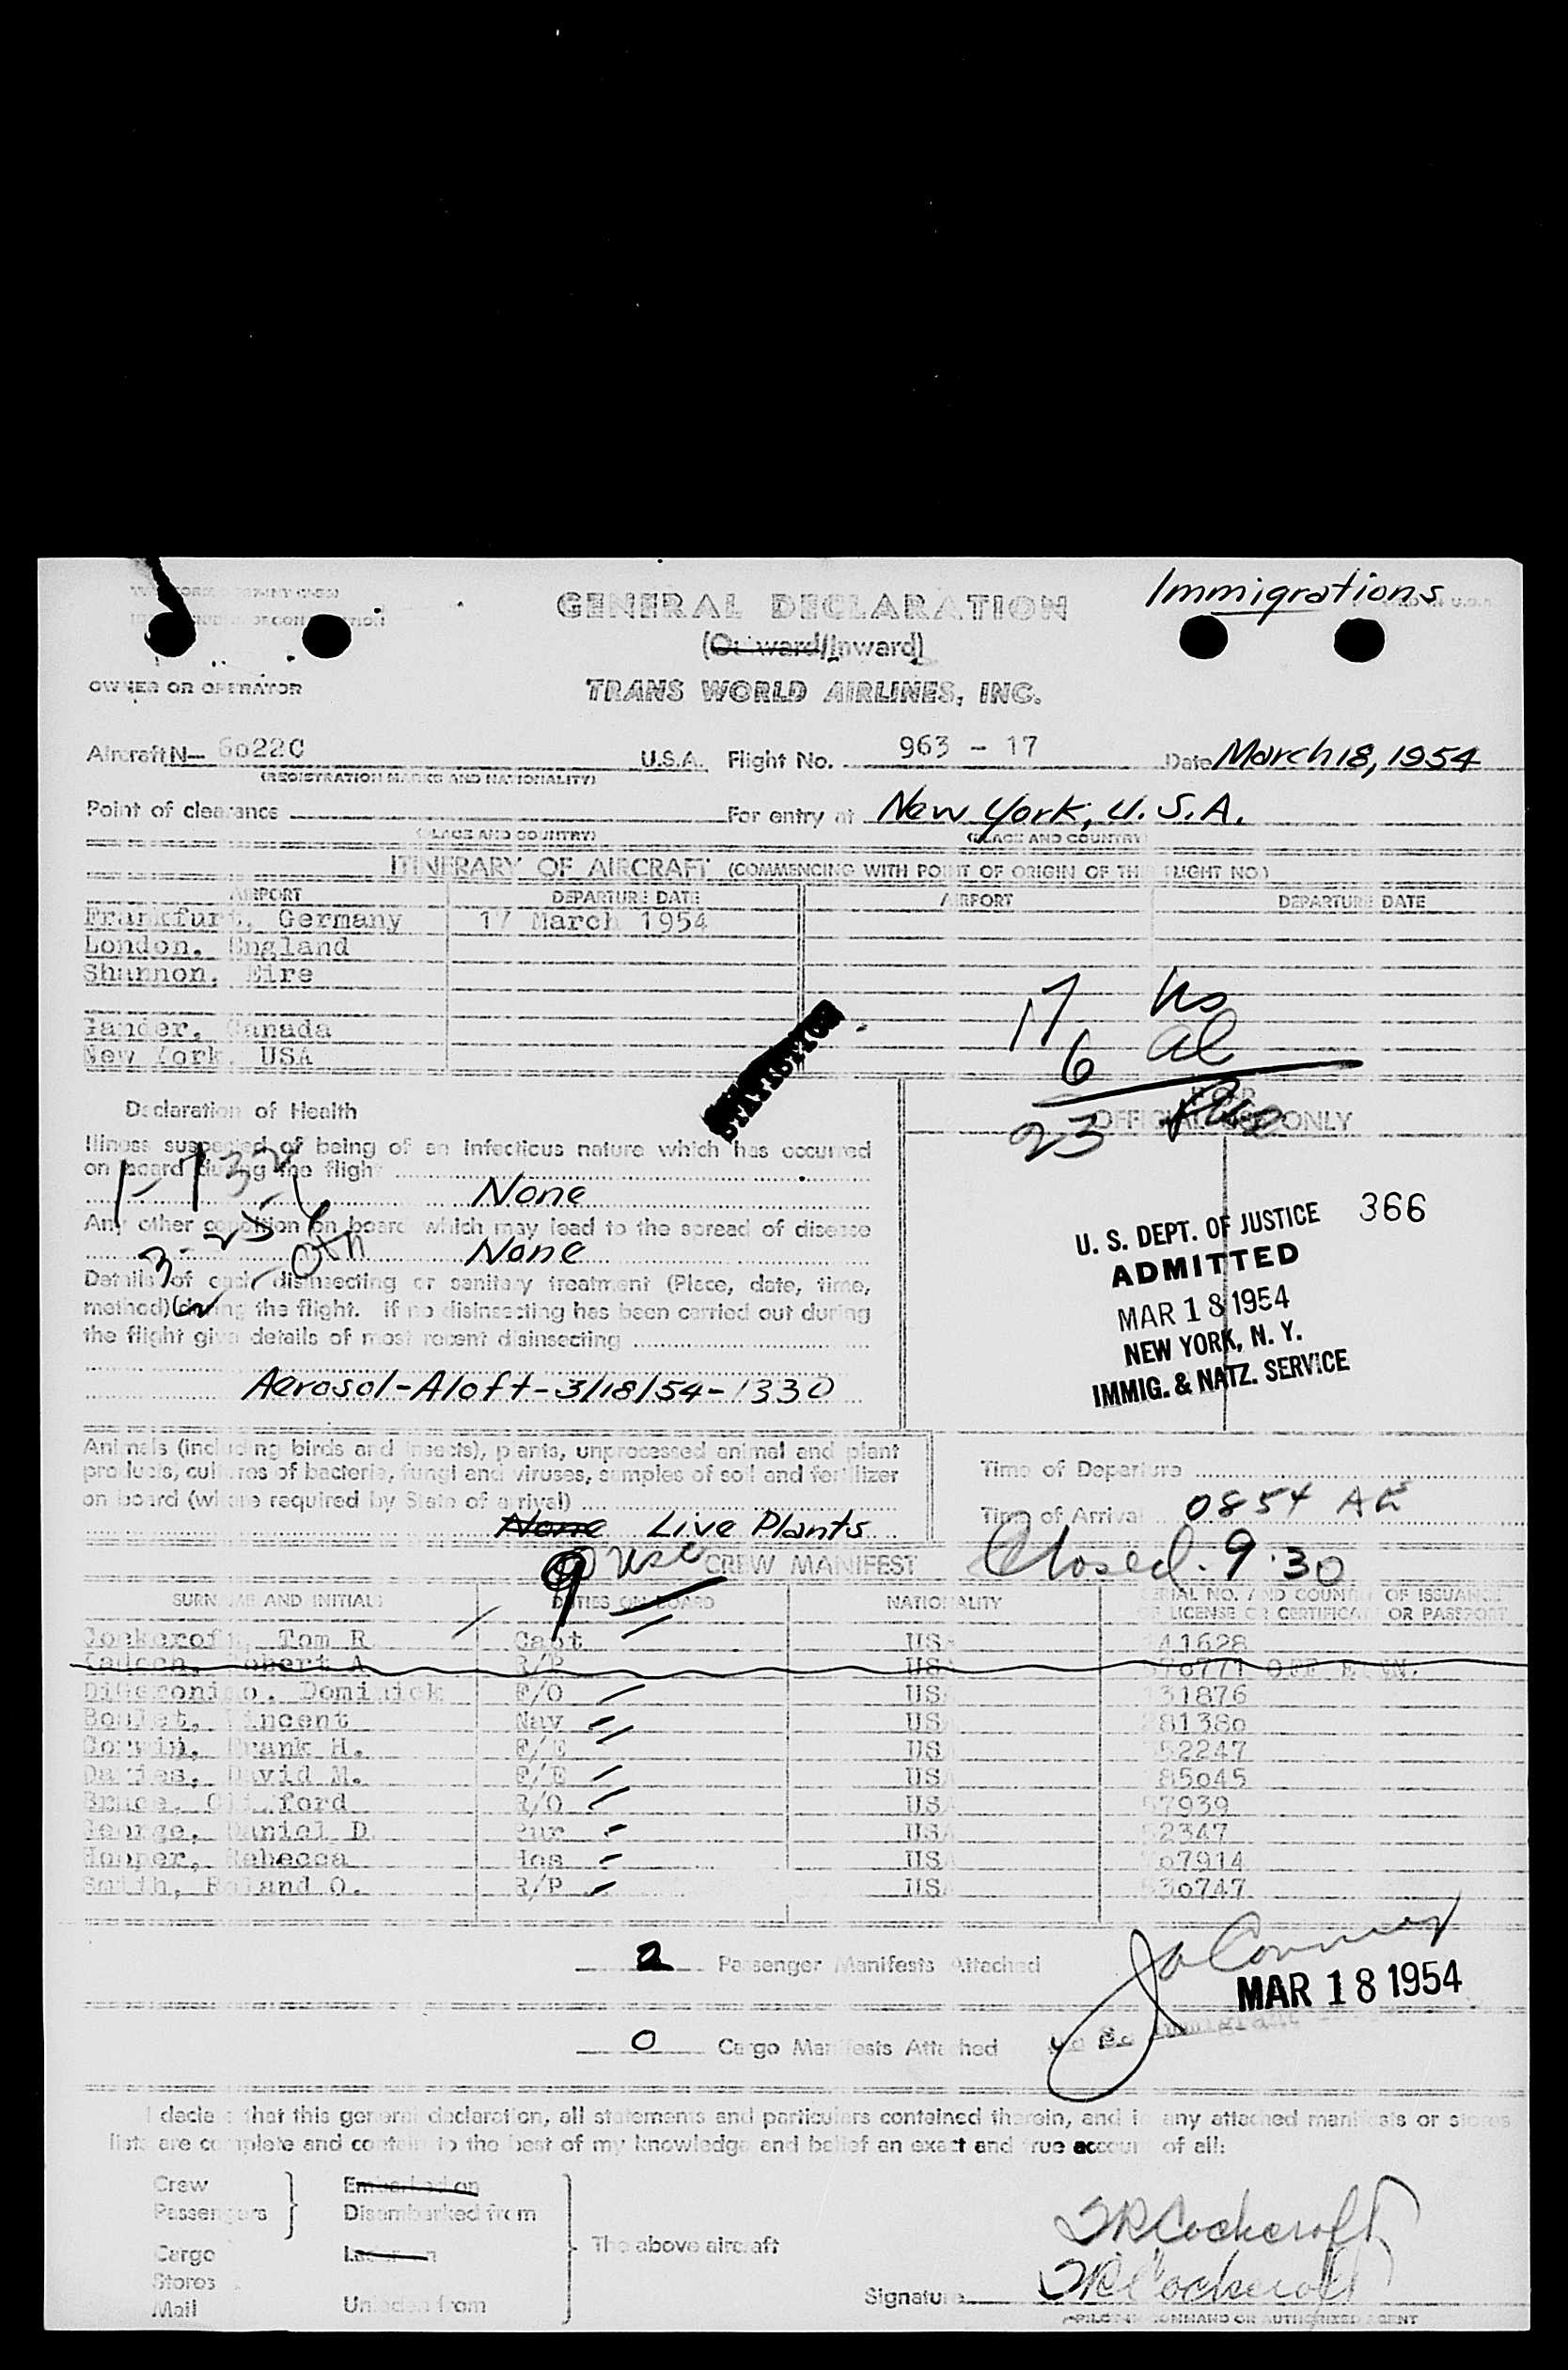 Immigrations
GENERAL DECLARATION
(Outward/Inward)
OWNER OR OPERATOR
TRANS WORLD AIRLINES, INC.
Aircraft N— 6o22C U.S.A. Flight No. 963 - 17 Date March 18, 1954
(REGISTRATION MARKS AND NATIONALITY)
Point of clearance For entry at New York, U.S.A.
(PLACE AND COUNTRY) (PLACE AND COUNTRY)
ITINERARY OF AIRCRAFT (COMMENCING WITH POINT OF ORIGIN OF THE FLIGHT NO.)
AIRPORT DEPARTURE DATE AIRPORT DEPARTURE DATE
Frankfurt, Germany 17 March 1954
London, England
Shannon, Eire
Gander, Canada
New York, USA
17
6 al
23
STATISTICS
FOR
OFFICIAL USE ONLY
Declaration of Health
Illness suspected of being of an infectious nature which has occurred
on board during the flight
None
Any other condition on board which may lead to the spread of disease
None
Details of each disinsecting or sanitary treatment (Place, date, time,
method) during the flight. If no disinsecting has been carried out during
the flight give details of most recent disinsecting
Aerosol-Aloft-3/18/54-1330
U. S. DEPT. OF JUSTICE 366
ADMITTED
MAR 18 1954
NEW YORK, N. Y.
IMMIG. & NATZ. SERVICE
Animals (including birds and insects), plants, unprocessed animal and plant
products, cultures of bacteria, fungi and viruses, samples of soil and fertilizer
on board (where required by State of arrival)
None Live Plants
Time of Departure
Time of Arrival 0854 AE
Closed. 9:30
9 usc
CREW MANIFEST
SURNAME AND INITIALS DUTIES ON BOARD NATIONALITY SERIAL NO. AND COUNTRY OF ISSUANCE
OF LICENSE OR CERTIFICATE OR PASSPORT
Cockcroft, Tom R. Capt US 41628
Robert A R/P US
Dominick F/O US 31876
Vincent Nav US 8138o
Corwin, Frank H. F/E US 52247
Davies, David M. F/E US 85o45
Bruce, Clifford R/O US 7939
George, Daniel D. Pur US 2347
Hooper, Rebecca Hos US o7914
Smith, Roland O. R/P US 3o747
2 Passenger Manifests Attached
MAR 18 1954
0 Cargo Manifests Attached
I declare that this general declaration, all statements and particulars contained therein, and in any attached manifests or stores
lists are complete and contain to the best of my knowledge and belief an exact and true account of all:
Crew Embarked on
Passengers Disembarked from
Cargo Laden on The above aircraft
Stores
Mail Unladen from
TRCockcroft
Signature TRCockcroft
(PILOT IN COMMAND OR AUTHORIZED AGENT